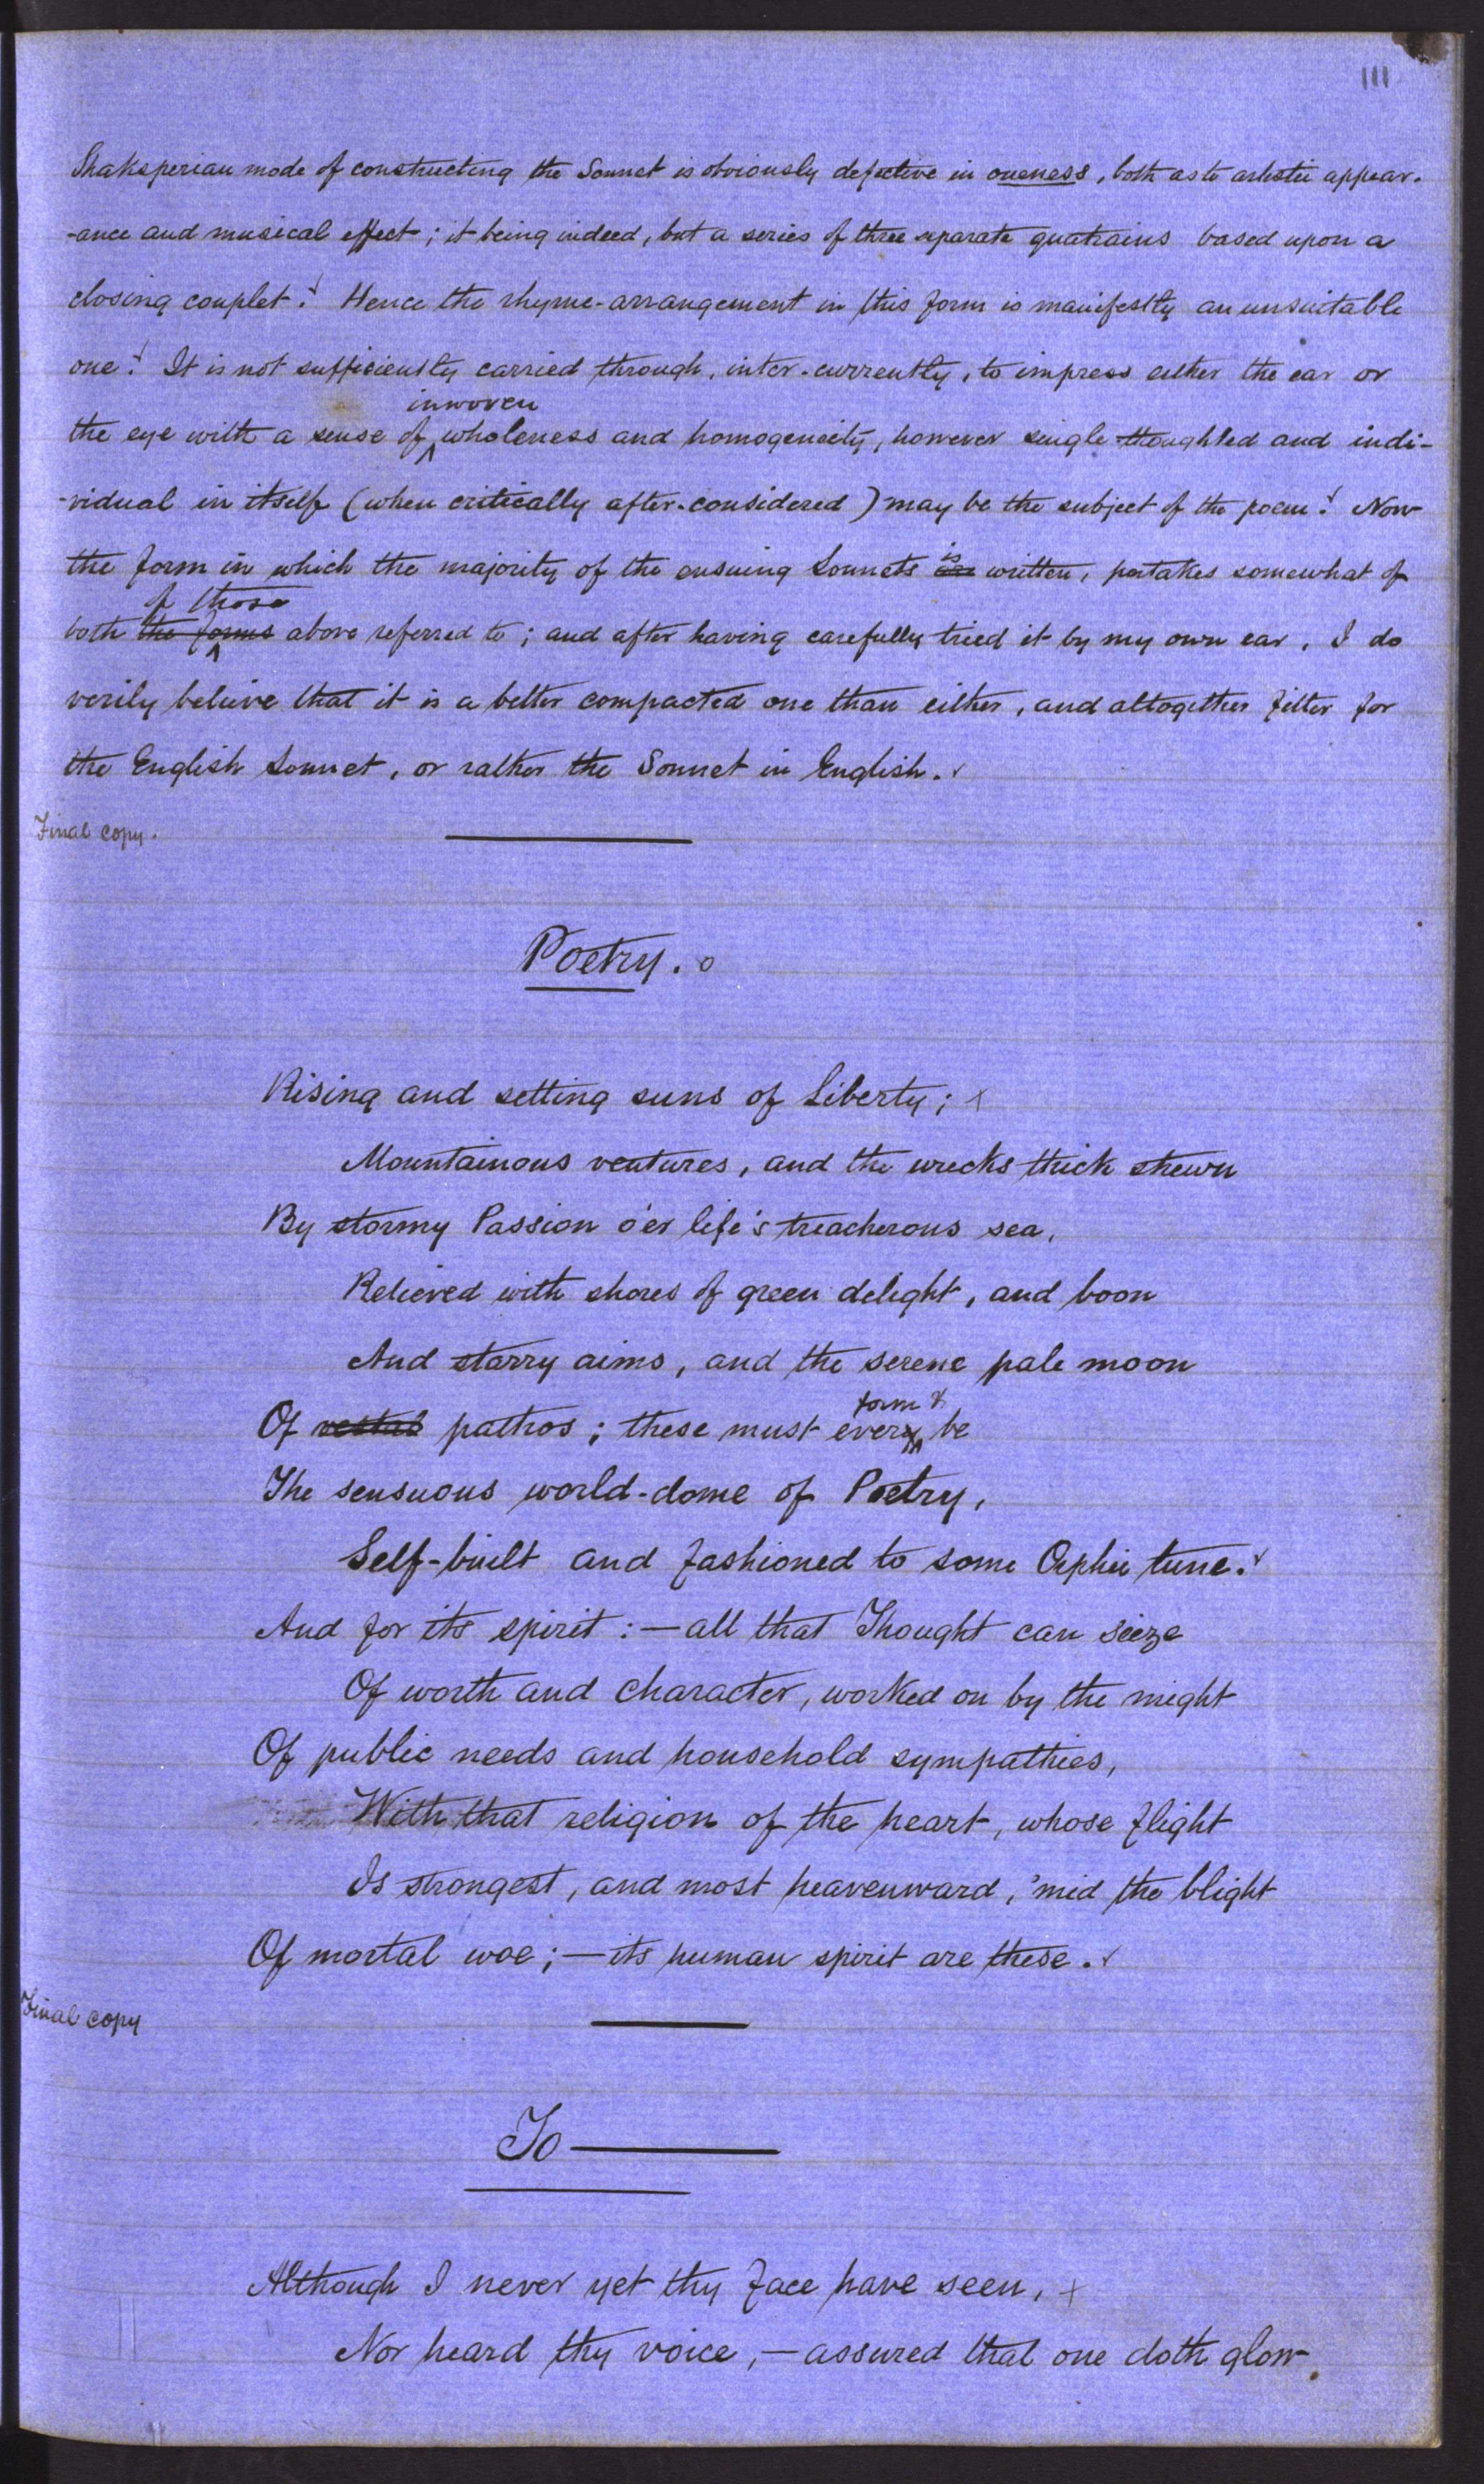 111
Shaksperian mode of constructing the Sonnet is obviously defective in oneness, both as to artistic appear-
-ance and musical effect; it being indeed, but a series of three separate quatrains based upon a
closing couplet. Hence the rhyme-arrangement in this form is manifestly an unsuitable
one. It is not sufficiently carried through, inter-currently, to impress either the ear or
inwoven
the eye with a sense of wholeness and homogeneity, however single-thoughted and indi-
-vidual in itself (when critically after-considered) may be the subject of the poem. Now
is
the form in which the majority of the ensuing Sonnets written, partakes somewhat of
of those
both the forms above referred to; and after having carefully tried it by my own ear, I do
verily believe that it is a better compacted one than either, and altogether fitter for
the English Sonnet, or rather the Sonnet in English.
Final copy.
Poetry.
Rising and setting suns of Liberty;
Mountainous ventures, and the wrecks thick strewn
By stormy Passion o'er life's treacherous sea,
Relieved with shores of green delight, and boon
And starry aims, and the serene pale moon
form &
Of vestal pathos; these must every be
The sensuous world-dome of Poetry,
Self-built and fashioned to some Orphic tune.
And for its spirit:—all that Thought can seize
Of worth and character, worked on by the might
Of public needs and household sympathies,
With that religion of the heart, whose flight
Is strongest, and most heavenward, 'mid the blight
Of mortal woe;—its human spirit are these.
Final copy
To ———
Although I never yet thy face have seen,
Nor heard thy voice,—assured that one doth glow